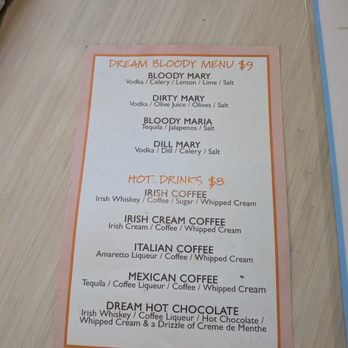 DREAM BLOODY MENU $9
BLOODY MARY
Vodka / Celery / Lemon / Lime / Salt
DIRTY MARY
Vodka / Olive Juice / Olives / Salt
BLOODY MARIA
Tequila / Jalapenos / Salt
DILL MARY
Vodka / Dill / Celery / Salt
HOT DRINKS $8
IRISH COFFEE
Irish Whiskey / Coffee / Sugar / Whipped Cream
IRISH CREAM COFFEE
Irish Cream / Coffee / Whipped Cream
ITALIAN COFFEE
Amaretto Liqueur / Coffee / Whipped Cream
MEXICAN COFFEE
Tequila / Coffee Liqueur / Coffee / Whipped Cream
DREAM HOT CHOCOLATE
Irish Whiskey / Coffee Liqueur / Hot Chocolate /
Whipped Cream & a Drizzle of Creme de Menthe